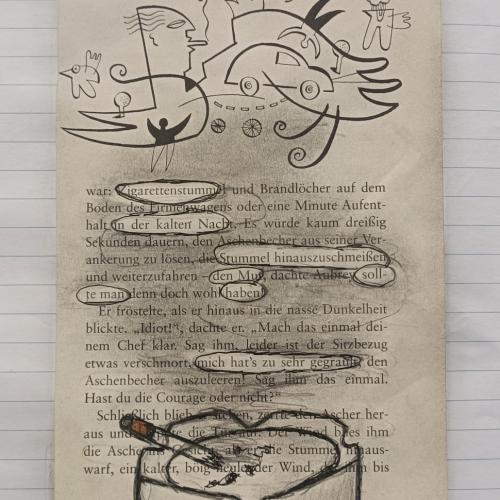 war: Zigarettenstummel und Brandlöcher auf dem
Boden des Firmenwagens oder eine Minute Aufent-
halt in der kalten Nacht. Es würde kaum dreißig
Sekunden dauern, den Aschenbecher aus seiner Ver-
ankerung zu lösen, die Stummel hinauszuschmeißen
und weiterzufahren – den Mut, dachte Aubrey, soll-
te man denn doch wohl haben.
Er fröstelte, als er hinaus in die nasse Dunkelheit
blickte. „Idiot!“, dachte er. „Mach das einmal dei-
nem Chef klar. Sag ihm, leider ist der Sitzbezug
etwas verschmort, mich hat's zu sehr gegrault, den
Aschenbecher auszuleeren! Sag ihm das einmal.
Hast du die Courage oder nicht?“
Schließlich blieb er stehen, zerrte den Ascher her-
aus und die Tür auf. Der Wind blies ihm
die Asche ins Gesicht, als er die Stummel hinaus-
warf, ein kalter, böig heulender Wind, der ihm bis